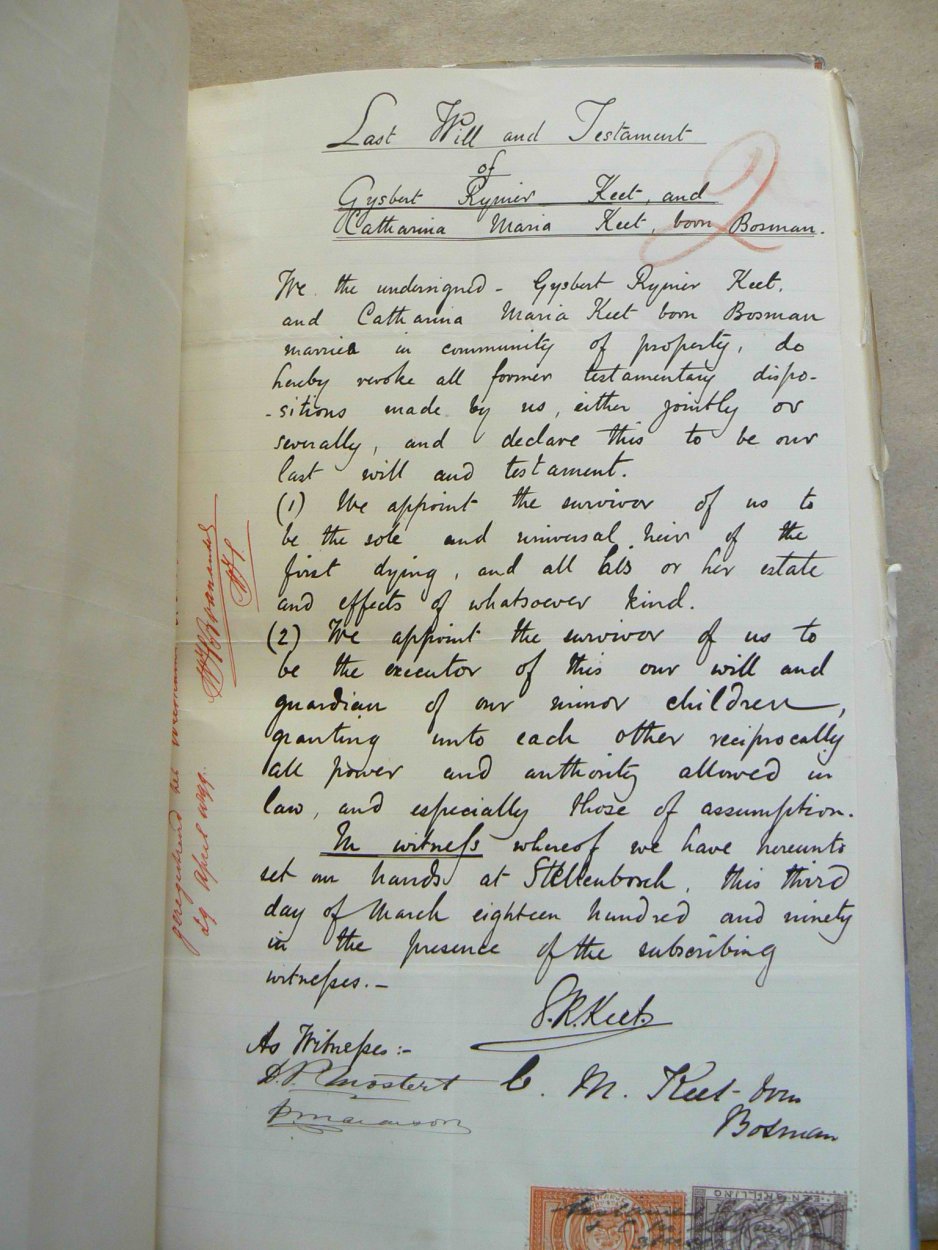 2
Last Will and Testament
of
Gysbert Rynier Keet, and
Catharina Maria Keet, born Bosman.
We the undersigned - Gysbert Rynier Keet,
and Catharina Maria Keet born Bosman
married in community of property, do
hereby revoke all former testamentary dispo-
-sitions made by us, either jointly or
severally, and declare this to be our
last will and testament.
(1) We appoint the survivor of us to
be the sole and universal heir of the
first dying, and all his or her estate
and effects of whatsoever kind.
(2) We appoint the survivor of us to
be the executor of this our will and
guardian of our minor children,
granting unto each other reciprocally
all power and authority allowed in
law, and especially those of assumption.
In witness whereof we have hereunto
set our hands at Stellenbosch, this third
day of March eighteen hundred and ninety
in the presence of the subscribing
witnesses.-
G.R.Keet
As Witnesses:-
D.P. Mostert
C. M. Keet born
Bosman
geregistreerd het
April
EEN SHELLING